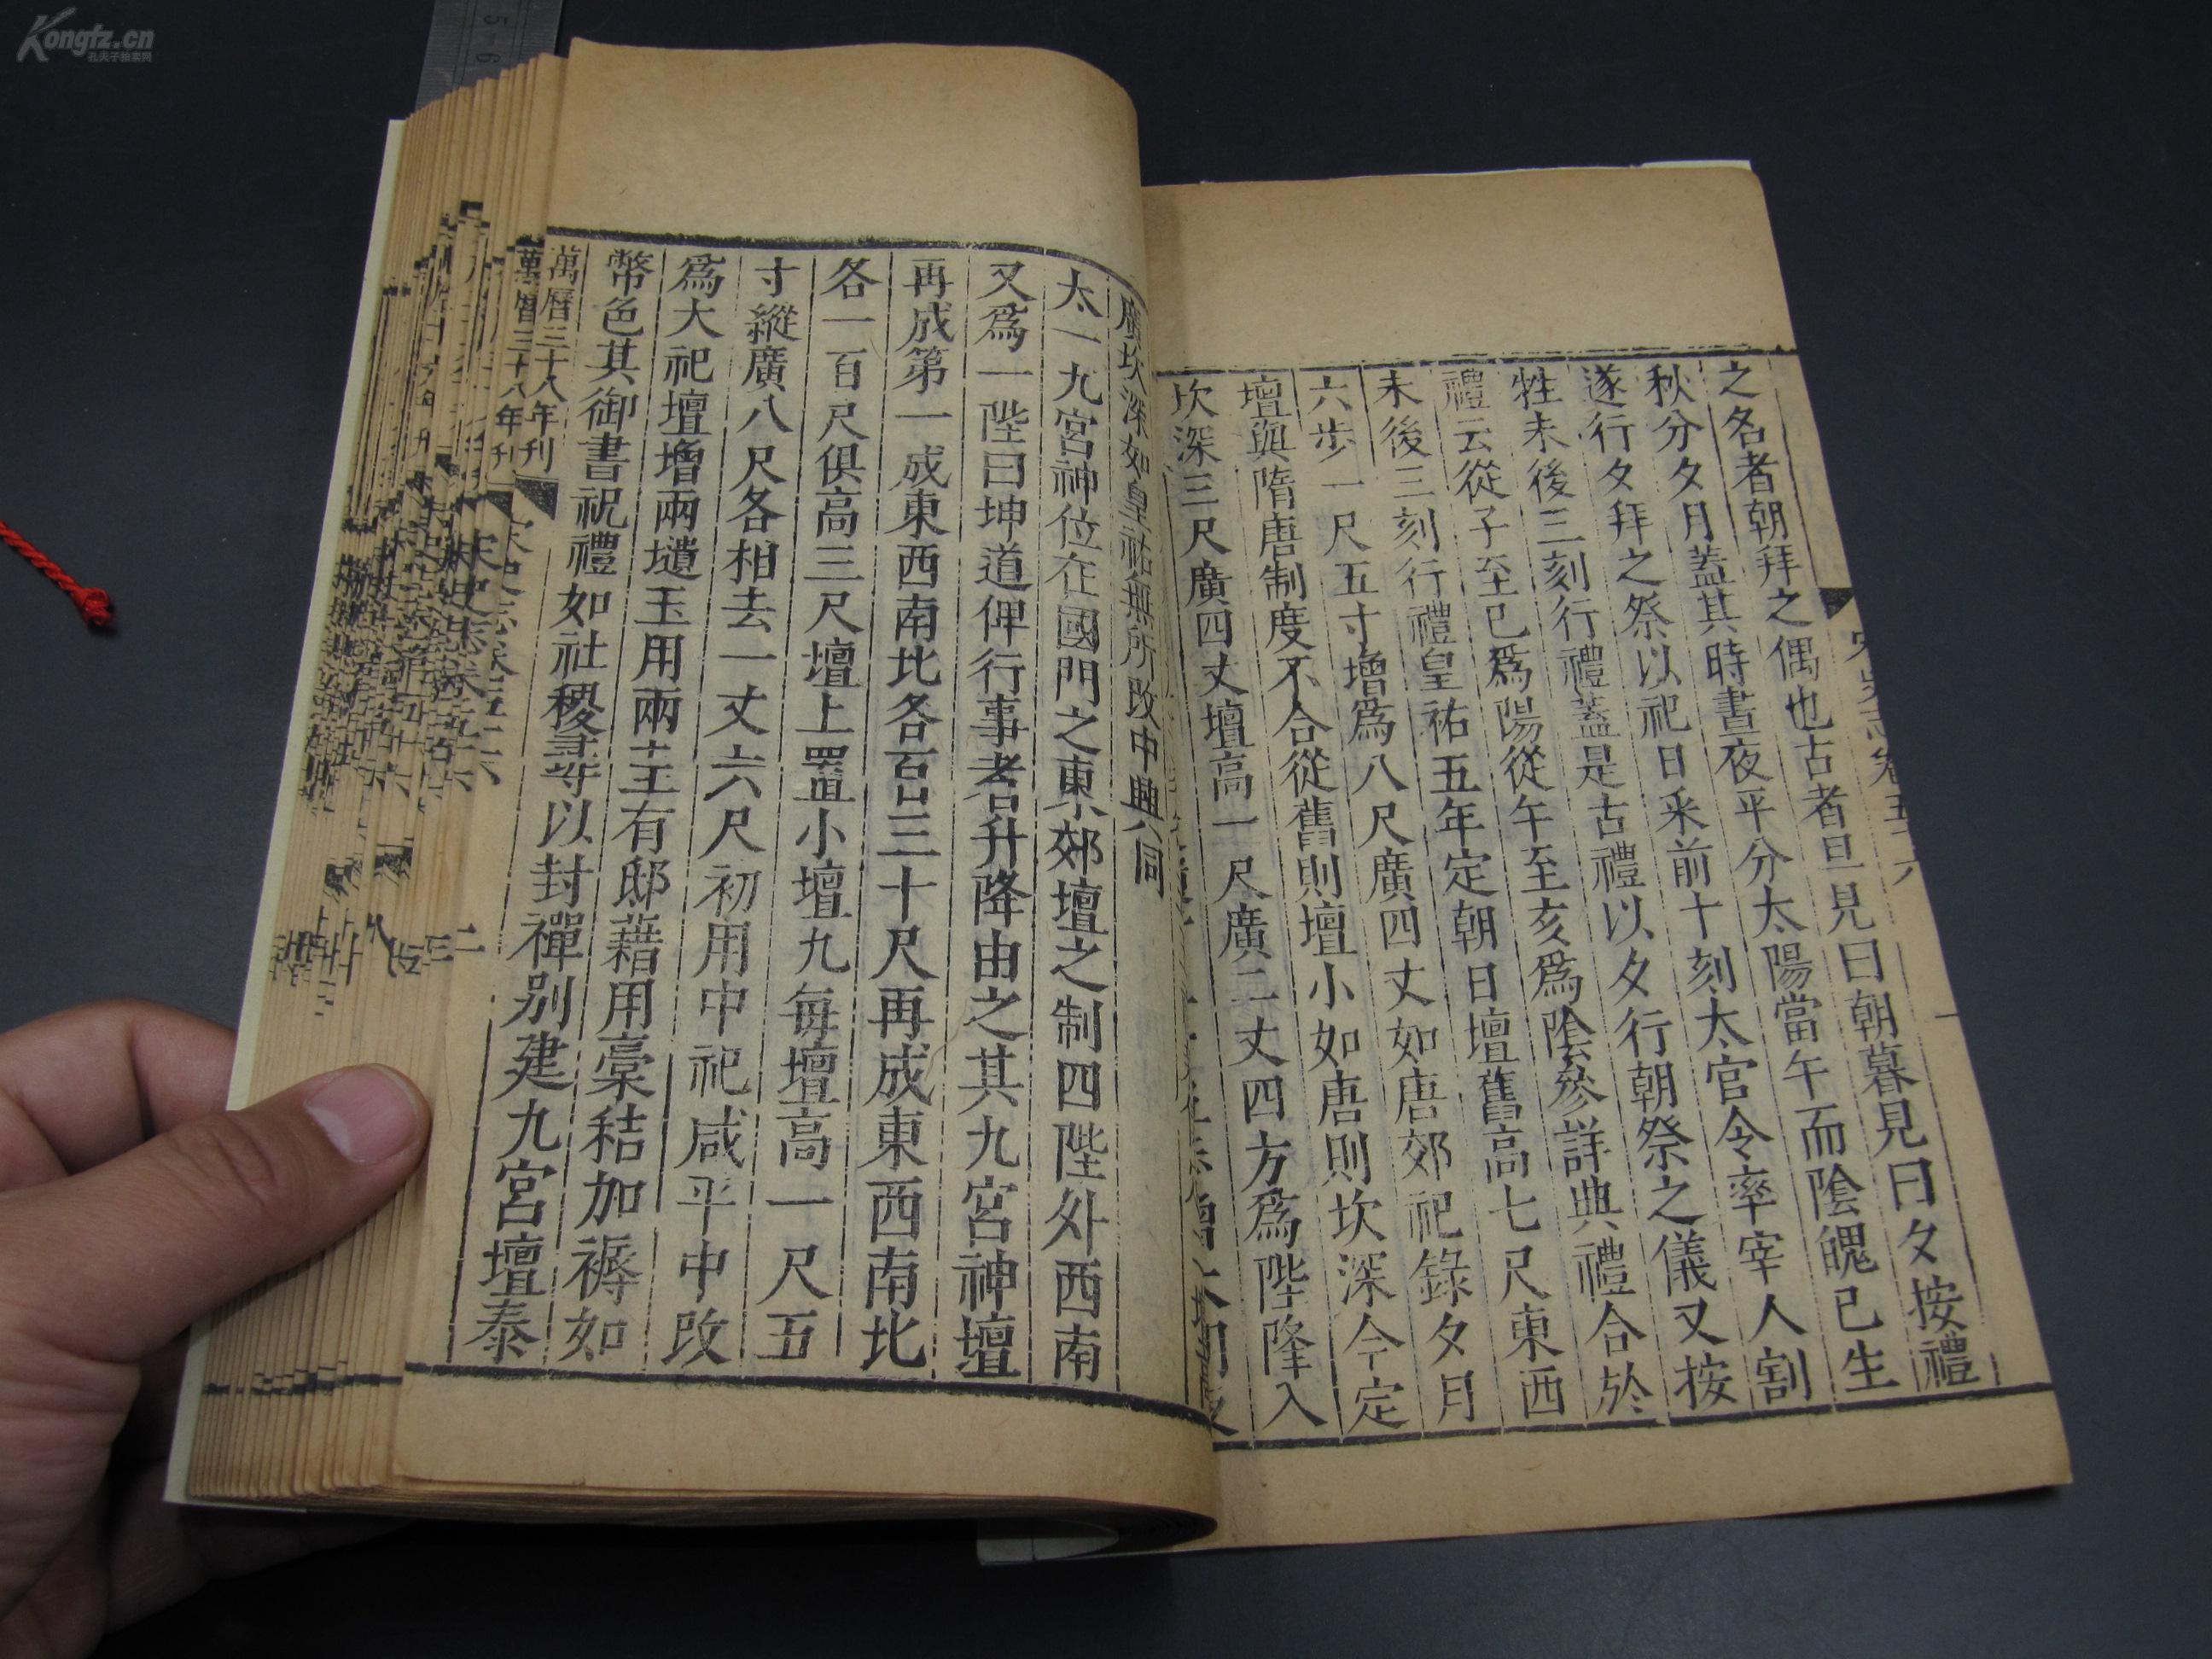 之名者朝拜之偶也古者旦見曰朝暮見曰夕按禮
秋分夕月蓋其時晝夜平分太陽當午而陰魄已生
遂行夕拜之祭以祀日釆前十刻太官令率宰人割
牲未後三刻行禮蓋是古禮以夕行朝祭之儀又按
禮云從子至巳爲陽從午至亥爲陰參詳典禮合於
未後三刻行禮皇祐五年定朝日壇舊高七尺東西
六步一尺五寸增爲八尺廣四丈如唐郊祀錄夕月
壇與隋唐制度不合從舊則壇小如唐則坎深今定
坎深三尺廣四丈壇高一尺廣二丈四方爲陛降入
廣坎深如皇祐無所改中興同
太一九宮神位在國門之東郊壇之制四陛外西南
又爲一陛曰坤道俾行事者升降由之其九宮神壇
再成第一成東西南北各百三十尺再成東西南北
各一百尺俱高三尺壇上置小壇九每壇高一尺五
寸縱廣八尺各相去一丈六尺初用中祀咸平中改
爲大祀壇增兩壝玉用兩圭有邸藉用稾秸加褥如
幣色其御書祝禮如社稷尋以封禪別建九宮壇泰
萬曆三十八年刊
萬曆三十八年刊
宋史志卷五十六
二
三
Kongfz.cn
孔夫子拍卖网
5
6